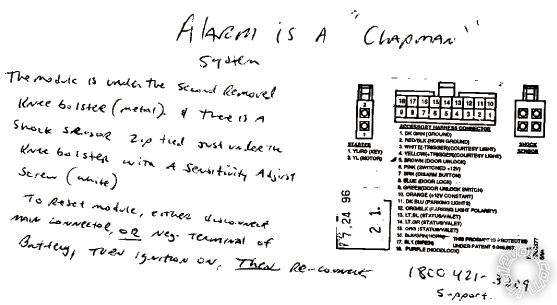 Alarm is A "Chapman"
System
The module is under the Second Removel
Knee bolster (metal). & there is A
Shock Sensor Zip tied Just under the
Knee bolster with A Sensitivity Adjust
Screw (white)
To Reset module, either disconnect
main connector, OR Neg. Terminal of
Battery, Turn ignition on, Then Re-connect
18 17 16 15 14 13 12 11 10
9 8 7 6 5 4 3 2 1
STARTER
1. YL/RD (KEY)
2. YL (MOTOR)
ACCESSORY HARNESS CONNECTOR
1. DK GRN (GROUND)
2. RED/BLK (HORN GROUND)
3. WHITE(-TRIGGER/COURTESY LIGHT)
4. YELLOW(+TRIGGER/COURTESY LIGHT)
5. BROWN (DOOR UNLOCK)
6. PINK (SWITCHED +12V)
7. BRN (DISARM BUTTON)
8. BLUE (DOOR LOCK)
9. GREEN(DOOR UNLOCK SWITCH)
10. ORANGE (+12V CONSTANT)
11. DK BLU (PARKING LIGHTS)
12. ORG/BLK (PARKING LIGHT POLARITY)
13. LT. BL (STATUS/VALET)
14. LT. GR (STATUS/VALET)
15. ORG (STATUS/VALET)
16.
17. (SIREN)
18. PURPLE (HOODLOCK)
THIS PRODUCT IS PROTECTED
UNDER PATENT
SHOCK
SENSOR
7 24 96
2 1.
1800 421-
Support.